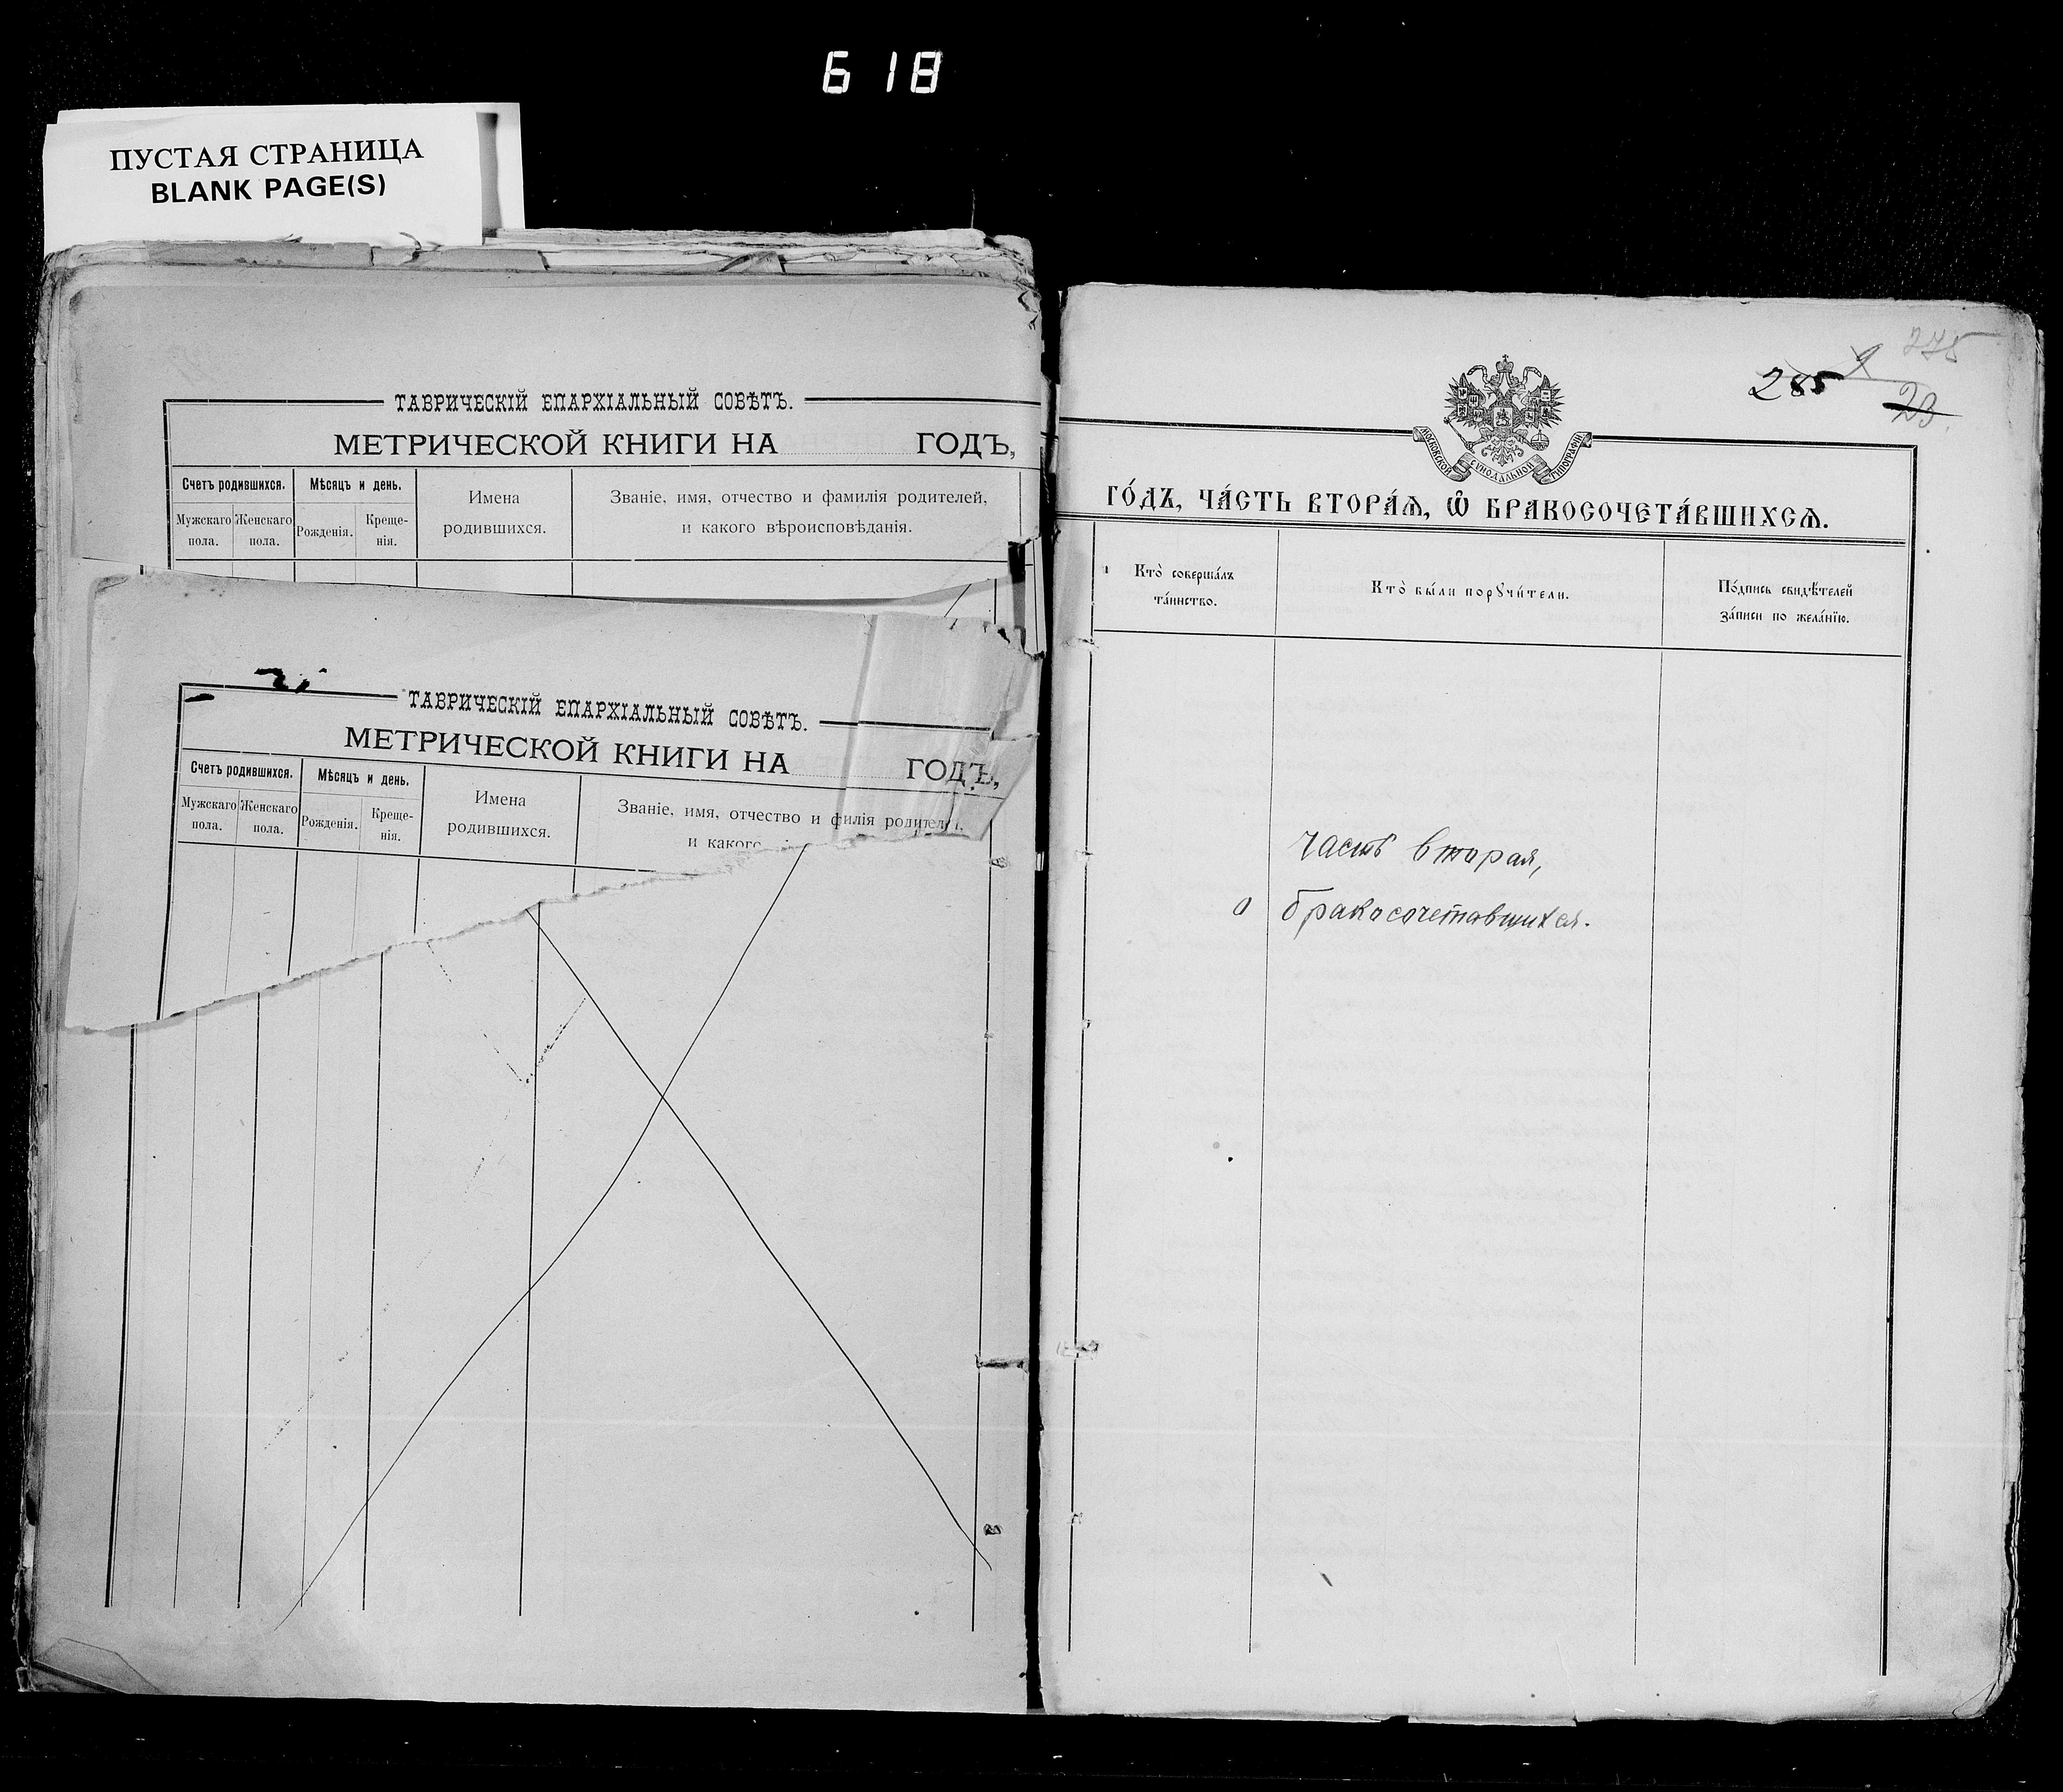 618
ПУСТАЯ СТРАНИЦА
BLANK PAGE(S)
ТАВРИЧЕСКІЙ ЕПАРХІАЛЬНЫЙ СОВѢТЪ.
МЕТРИЧЕСКОЙ КНИГИ НА ГОДЪ,
Счетъ родившихся. Мѣсяцъ и день. Имена родившихся. Званіе, имя, отчество и фамилія родителей, и какого вѣроисповѣданія.
Мужскаго пола. Женскаго пола. Рожденія. Креще-
нія.
ТАВРИЧЕСКІЙ ЕПАРХІАЛЬНЫЙ СОВѢТЪ.
МЕТРИЧЕСКОЙ КНИГИ НА ГОДЪ,
Счетъ родившихся. Мѣсяцъ и день. Имена родившихся. Званіе, имя, отчество и филія родител
и какого
Мужскаго пола. Женскаго пола. Рожденія. Креще-
нія.
275
285
23
МОСКОВСКОЙ СѴНОДАЛЬНОЙ ТИПОГРАФІИ
ГО́ДЪ, ЧА́СТЬ ВТОРА́Ѧ, Ѽ БРАКОСОЧЕТА́ВШИХСѦ.
Кто̀ соверша́лъ
та́инство.
Кто̀ бы́ли порꙋчи́тели.
По́дпись свидѣ́телей
за́писи по жела́нїю.
часть вторая,
о бракосочетавшихся.